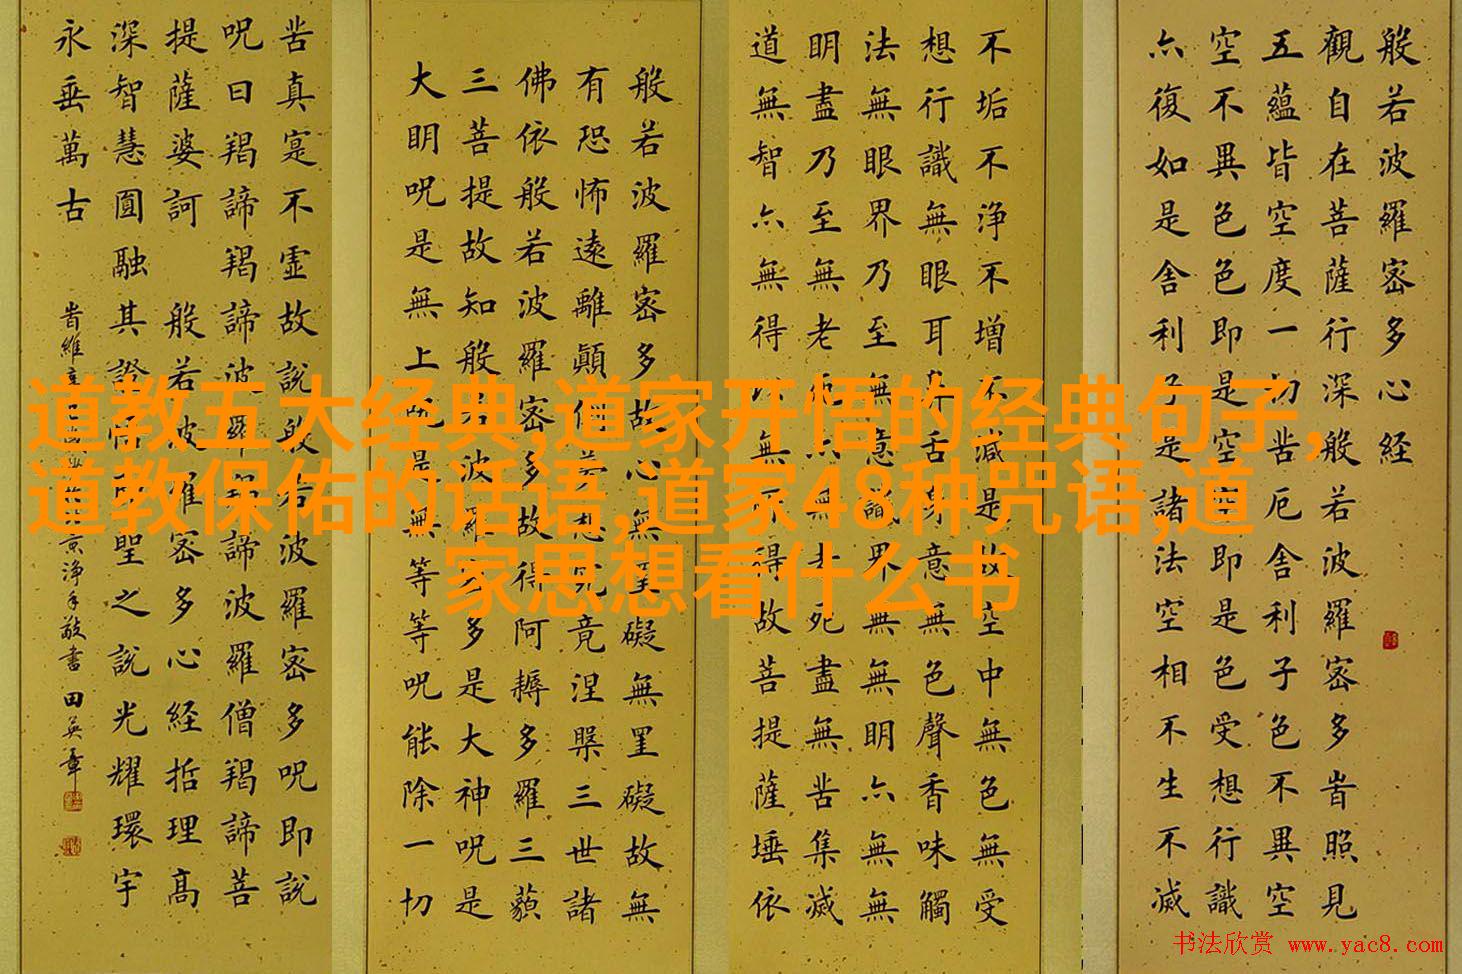 般若波羅密多心经
觀自在菩薩行深般若波羅密多旹照見
五蘊皆空度一切苦厄舍利子色不異空
空不異色色即是空空即是色受想行識
亦復如是舍利子是諸法空相不生不滅
不垢不淨不增不減是故空中無色無受
想行識無眼耳鼻舌身意無色聲香味觸
法無眼界乃至無意識界無無明亦無無
明盡乃至無老死亦無老死盡無苦集滅
道無智亦無得以無所得故菩提薩埵依
般若波羅密多故心無罣礙無罣礙故無
有恐怖遠離顛倒夢想究竟涅槃三世諸
佛依般若波羅密多故得阿耨多羅三藐
三菩提故知般若波羅密多是大神呪是
大明呪是無上呪是無等等呪能除一切
苦真寔不虛故說般若波羅密多呪即說
呪曰羯諦羯諦波羅羯諦波羅僧羯諦菩
提薩婆訶 般若波羅密多心経括理高
深智慧圓融其證悟聖之說光耀環宇
永垂萬古
旹維京淨手敬書 田英章
道教五大经典,道家开悟的经典句子,
道教保佑的话语,道家48种咒语,道
家思想看什么书
书法欣赏 www.yac8.com